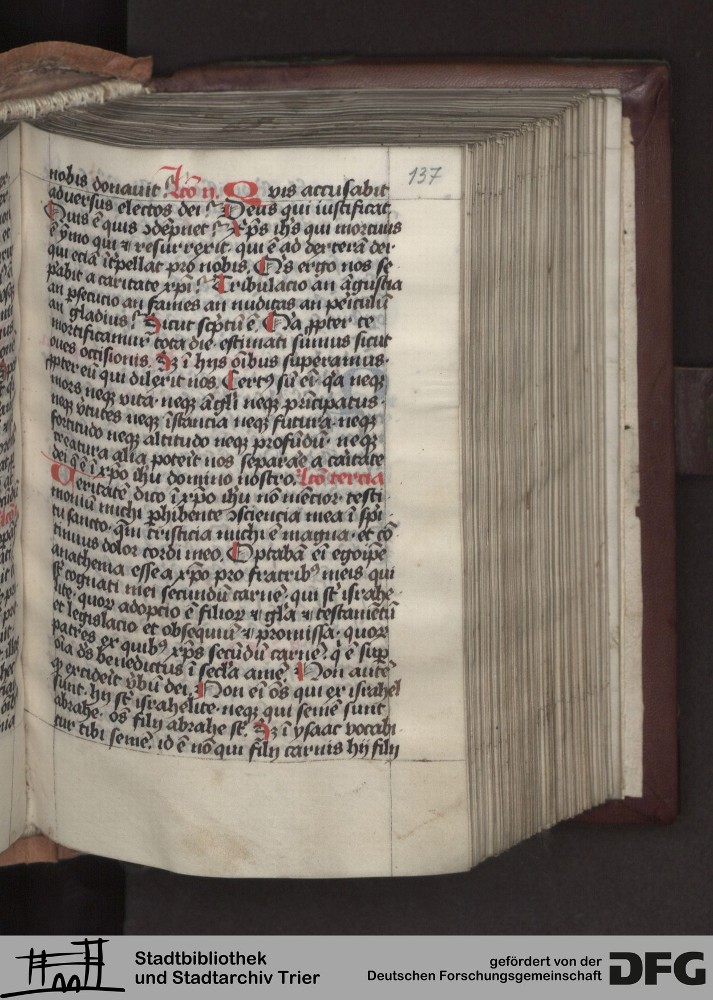 nobis donauit. Lc̄o ij. Quis accusabit
aduersus electos dei? Deus qui iustificat.
Quis ē quis ↄdēpnet? Xp̄s ih̄s qui mortuus
ē ymo qui ⁊ resurrexit. qui ē ad dexterā dei.
qui eciā īt̄pellat pro nobis. Q̄s ergo nos se
p̄abit a caritate xp̄i? Tribulacio an āgustia
an ꝑsecucio an fames an nuditas an peiculū
an gladius? Sicut sc̄ptū ē. Q̄a ꝓpter te
mortificamur tota die. estimati sumus sicut
oues occisionis. Sꝫ ī hijs oībus superamus.
ꝓpter eū qui dilexit nos. Certꝰ sū ei. q̄a neqꝫ
mors neqꝫ vita. neqꝫ āgl̄i neqꝫ prīcipatus.
neqꝫ v̄tutes neqꝫ īstancia neqꝫ futura. neqꝫ
fortitudo neqꝫ altitudo neqꝫ profūdū. neqꝫ
creatura alia poterit nos separare a caritate
dei q̄ ē ī xp̄o ih̄u domino nostro. Lc̄o tercia
Ueritatē dico ī xp̄o ih̄u nō mētior. testi
moniū michi ꝑhibente ↄsciencia mea ī sp̄i
tu sancto. qm̄ tristicia michi ē magna. et cō
tinuus dolor cordi meo. Optabā ei egoip̄e
anathema esse a xp̄o pro fratribꝰ meis qui
st̄ cognati mei secundū carnē. qui st̄ israhe
lite. quoꝝ adoptio ē filioꝝ ⁊ gl̄a ⁊ testamētū
et legislacio et obsequiū ⁊ promissa. quoꝝ
patres ex quibꝰ xp̄s secūdū carnē. q̄ ē sup̄
oīa d̄s benedictus ī secl̄a amē. Non autē
ꝙ exciderit v̄bū dei. Non ei ōs qui ex israhel
sunt. hij st̄ israhelite. neqꝫ qui semē sunt
abrahe. ōs filij abrahe st̄. Sꝫ ī ysaac vocabi
tur tibi semē. id ē nō qui filij carnis hij filij
137
Stadtbibliothek
und Stadtarchiv Trier
gefördert von der
Deutschen Forschungsgemeinschaft
DFG